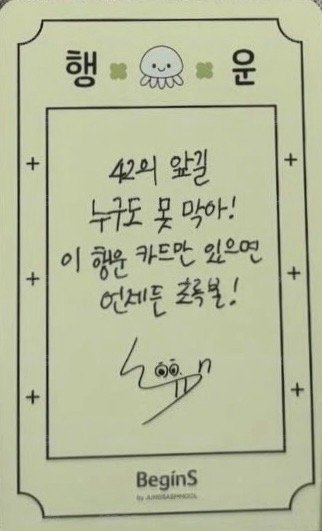 행 운
42의 앞길
누구도 못 막아!
이 행운 카드만 있으면
언제든 초록불!
BeginS
by JUNGSAEMMOOL